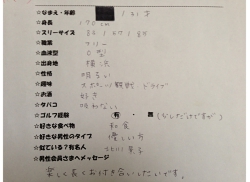 ☆なまえ・年齢 / 31才
☆身長 170cm
☆スリーサイズ
☆職業 フリー
☆血液型 O型
☆出身地 横浜
☆性格 明るい
☆趣味 スポーツ観戦 ドライブ
☆お酒 好き
☆タバコ 吸わない
☆ゴルフ経験 有・無 (少しだけですが)
☆好きな食べ物 和食
☆好きな男性のタイプ 優しい方
☆似ている？有名人 北川景子
☆男性会員さまへメッセージ
楽しく長くお付き合いしたいです。